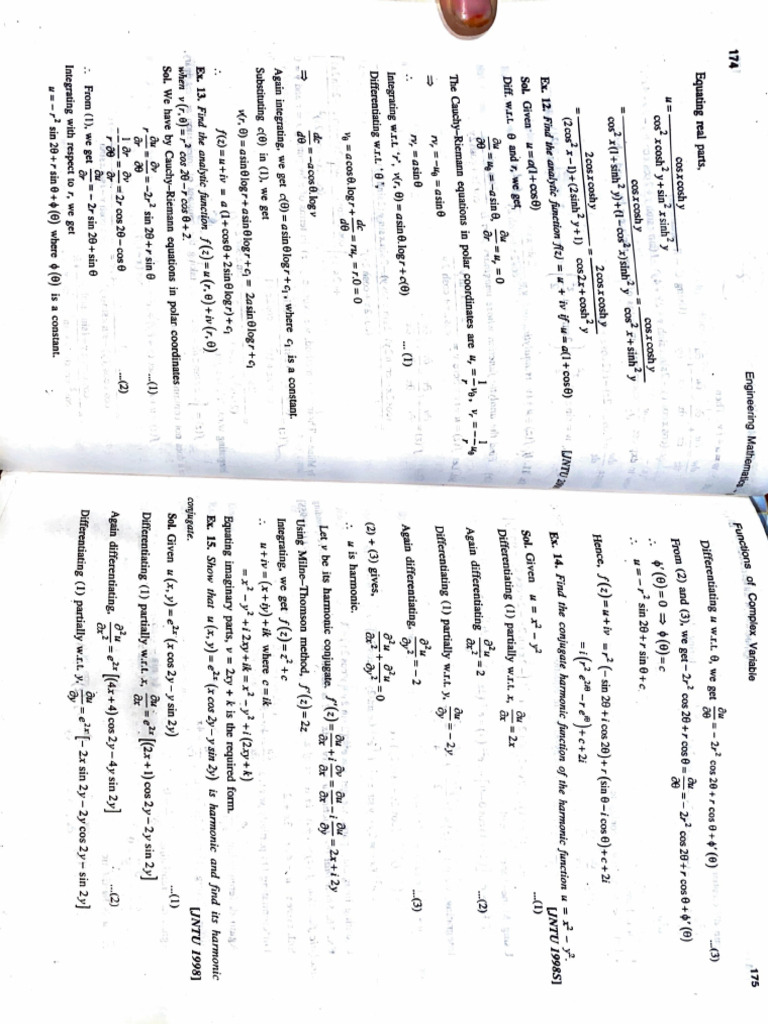 174
Engineering Mathematic
Equating real parts,
u = cos x cosh y / (cos² x cosh² y + sin² x sinh² y)
= cos x cosh y / (cos² x (1 + sinh² y) + (1 − cos² x) sinh² y) = cos x cosh y / (cos² x + sinh² y)
= 2cos x cosh y / ((2cos² x − 1) + (2sinh² y + 1)) = 2cos x cosh y / (cos 2x + cosh² y)
Ex. 12. Find the analytic function f(z) = u + iv if u = a(1 + cos θ) [JNTU
Sol. Given u = a(1 + cos θ)
Diff. w.r.t. θ and r, we get,
∂u/∂θ = u_θ = −a sin θ, ∂u/∂r = u_r = 0
The Cauchy-Riemann equations in polar coordinates are u_r = (1/r) v_θ, v_r = −(1/r) u_θ
⇒ rv_r = −u_θ = a sin θ
∴ rv_r = a sin θ
Integrating w.r.t. 'r', v(r, θ) = a sin θ. log r + c(θ) ... (1)
Differentiating w.r.t. 'θ',
v_θ = a cos θ. log r + dc/dθ = ru_r = r.0 = 0
⇒ dc/dθ = −a cos θ. log v
Again integrating, we get c(θ) = a sin θ log r + c₁, where c₁ is a constant.
Substituting c(θ) in (1), we get
v(r, θ) = a sin θ log r + a sin θ log r + c₁ = 2a sin θ log r + c₁
∴ f(z) = u + iv = a (1 + cos θ + 2 sin θ log r) + c₁
Ex. 13. Find the analytic function f(z) = u(r, θ) + iv(r, θ)
when v(r, θ) = r² cos 2θ − r cos θ + 2.
Sol. We have by Cauchy–Riemann equations in polar coordinates
r ∂u/∂r = ∂v/∂θ = −2r² sin 2θ + r sin θ ...(1)
−(1/r) ∂u/∂θ = ∂v/∂r = 2r cos 2θ − cos θ ...(2)
∴ From (1), we get ∂u/∂r = −2r sin 2θ + sin θ
Integrating with respect to r, we get
u = −r² sin 2θ + r sin θ + ϕ(θ) where ϕ(θ) is a constant.
Functions of Complex Variable
175
Differentiating u w.r.t. θ, we get ∂u/∂θ = −2r² cos 2θ + r cos θ + ϕ′(θ) ...(3)
From (2) and (3), we get −2r² cos 2θ + r cos θ = ∂u/∂θ = −2r² cos 2θ + r cos θ + ϕ′(θ)
∴ ϕ′(θ) = 0 ⇒ ϕ(θ) = c
∴ u = −r² sin 2θ + r sin θ + c
Hence, f(z) = u + iv = r²(−sin 2θ + i cos 2θ) + r(sin θ − i cos θ) + c + 2i
= i(r² e^{2iθ} − r e^{iθ}) + c + 2i
Ex. 14. Find the conjugate harmonic function of the harmonic function u = x² − y².
[JNTU 1998S]
Sol. Given u = x² − y² ...(1)
Differentiating (1) partially w.r.t. x, ∂u/∂x = 2x
Again differentiating, ∂²u/∂x² = 2 ...(2)
Differentiating (1) partially w.r.t. y, ∂u/∂y = −2y
Again differentiating, ∂²u/∂y² = −2 ...(3)
(2) + (3) gives, ∂²u/∂x² + ∂²u/∂y² = 0
∴ u is harmonic.
Let v be its harmonic conjugate. f′(z) = ∂u/∂x + i ∂v/∂x = ∂u/∂x − i ∂u/∂y = 2x + i 2y
Using Milne–Thomson method, f′(z) = 2z
Integrating, we get f(z) = z² + c
∴ u + iv = (x + iy) + ik where c = ik
= x² − y² + i 2xy + ik = x² − y² + i(2xy + k)
Equating imaginary parts, v = 2xy + k is the required form.
Ex. 15. Show that u(x, y) = e^{2x}(x cos 2y − y sin 2y) is harmonic and find its harmonic
conjugate. [JNTU 1998]
Sol. Given u(x, y) = e^{2x}(x cos 2y − y sin 2y) ...(1)
Differentiating (1) partially w.r.t. x, ∂u/∂x = e^{2x}[(2x + 1) cos 2y − 2y sin 2y]
Again differentiating, ∂²u/∂x² = e^{2x}[(4x + 4) cos 2y − 4y sin 2y] ...(2)
Differentiating (1) partially w.r.t. y, ∂u/∂y = e^{2x}[−2x sin 2y − 2y cos 2y − sin 2y]